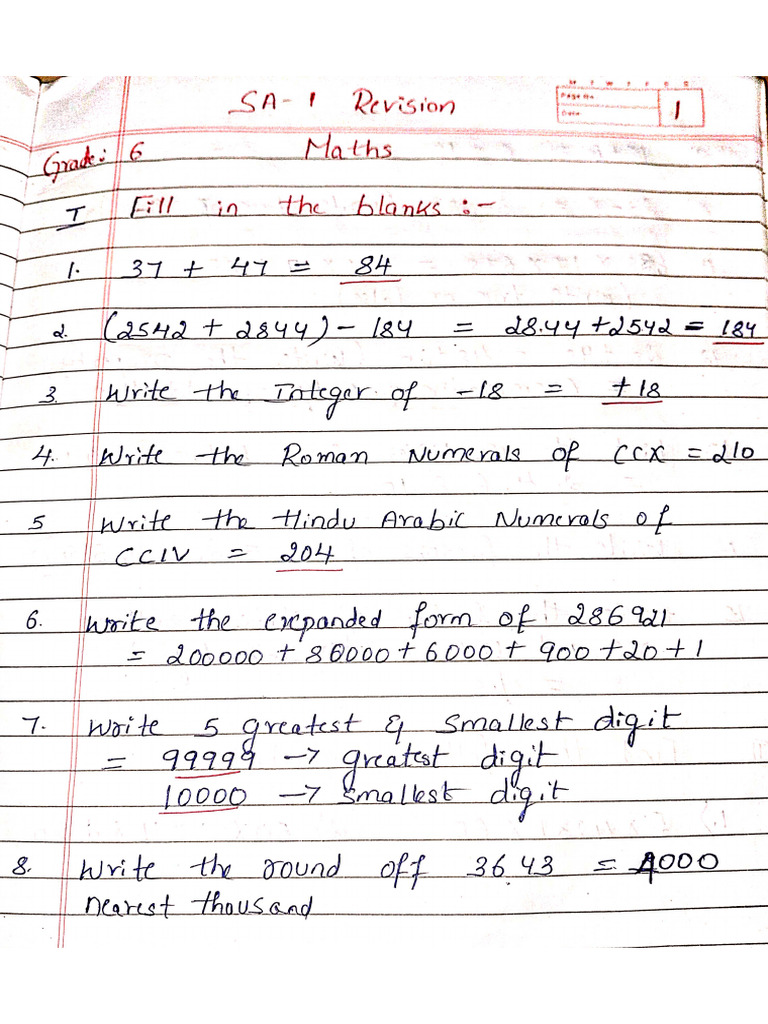 M T W T F S S
Page No.
Date
1
SA-1 Revision
Grade: 6 Maths
I Fill in the blanks :-
1. 37 + 47 = 84
2. (2542 + 2844) - 184 = 28.44 + 2542 = 184
3. Write the Integer of -18 = +18
4. Write the Roman Numerals of CCX = 210
5 Write the Hindu Arabic Numerals of
CCIV = 204
6. Write the expanded form of 286921
= 200000 + 80000 + 6000 + 900 + 20 + 1
7. Write 5 greatest & smallest digit
= 99999 → greatest digit
10000 → smallest digit
8. Write the round off 36.43 = 4000
nearest thousand